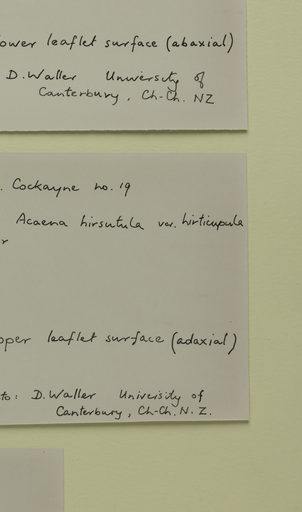 lower leaflet surface (abaxial)
D. Waller University of
Canterbury, Ch-Ch. NZ
. Cockayne no. 19
Acaena hirsutula var. hirticupula
r
pper leaflet surface (adaxial)
to: D. Waller University of
Canterbury, Ch-Ch. N. Z.